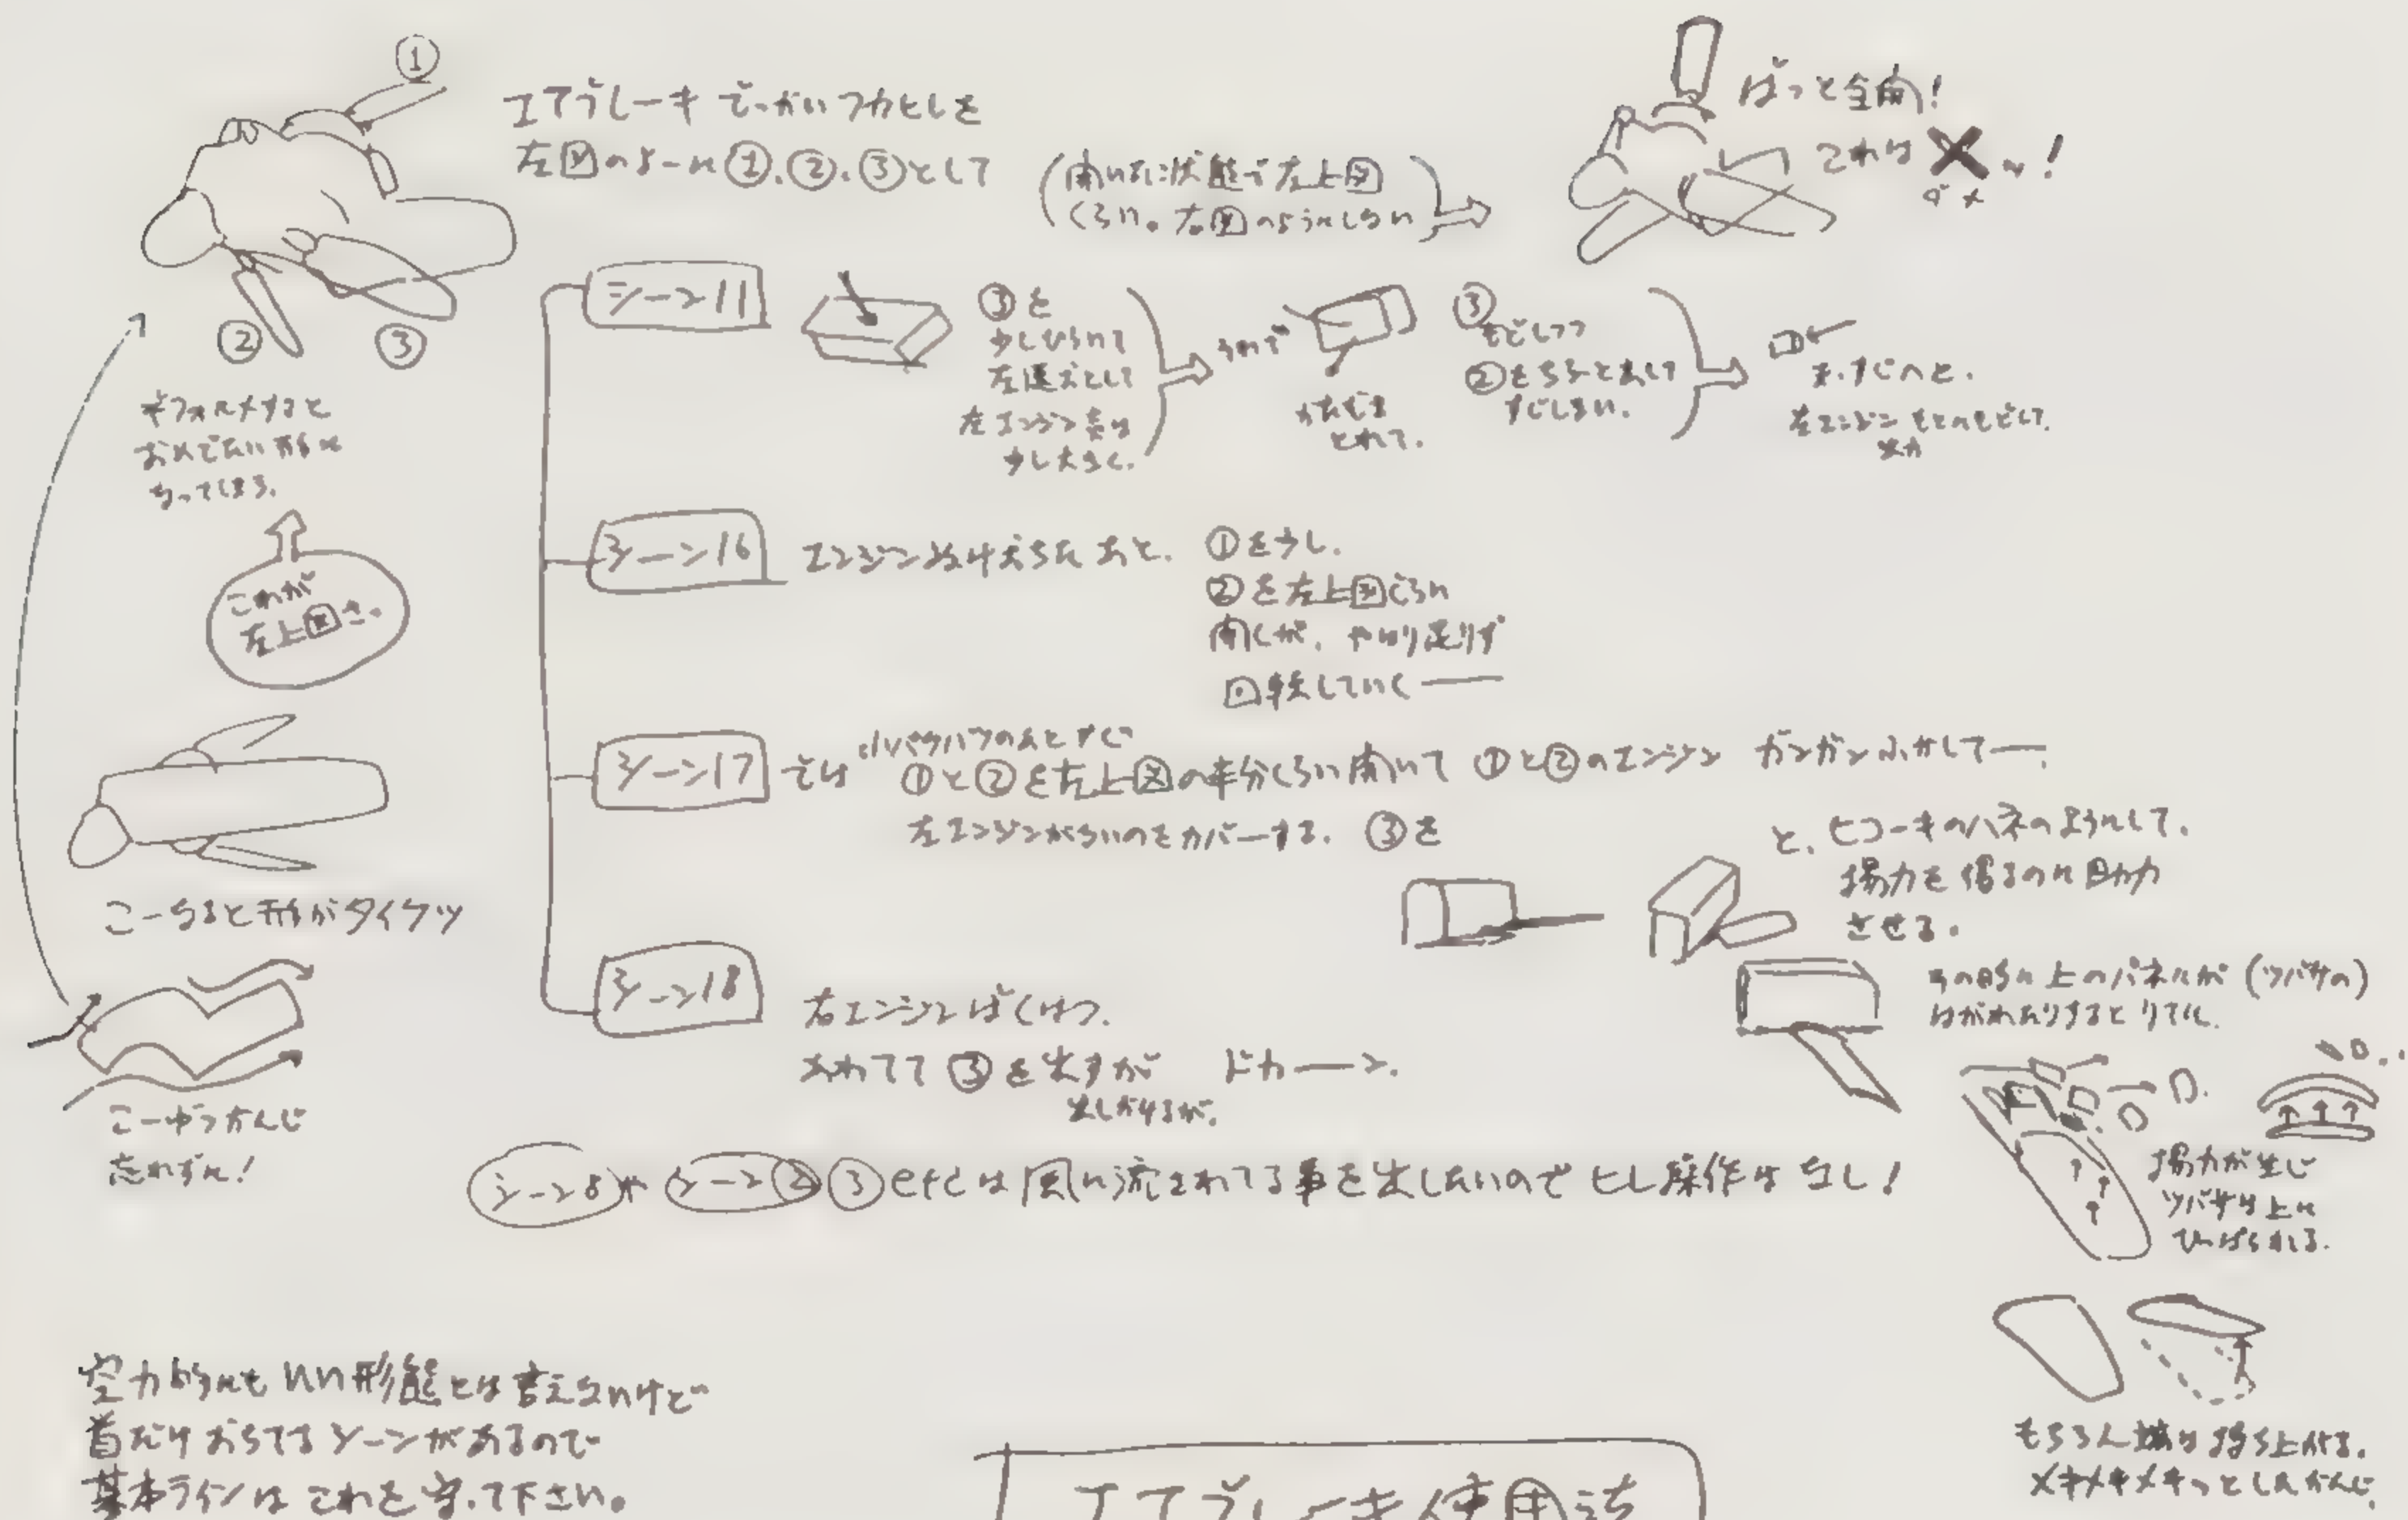 ①
エアブレーキ でっかいフカヒレを
左図のよーに①.②.③として
(開いた状態で左上図
くらい。右図のようにしない)
ばっと全開!
これは✕〜!
ダメ
②
③
デフォルメすると
おめでたい形に
なってしまう.
これが
左上図さ.
こーなると形がタイクツ
こーゆうかんじ
忘れずに!
シーン11
③を
少しひらいて
左に
左エンジン
少し大きく.
それで
かたむき
とれて.
③
もどしつつ
②もちょっと出して
すじしない.
ま.すじへと.
左エンジン もとにもどして.
シーン16
エンジンぬけおちた あと.
①を少し.
②を左上図ぐらい
開くが. やはり足りず
回転していく——
シーン17
では
小バクハツのあとすぐ
①と②を左上図の半分くらい開いて ①と②のエンジン ガンガンふかして——.
左エンジンがないのをカバーする. ③を
と. ヒコーキのハネのようにして.
揚力を得るのに助力
させる.
その時に上のパネルが (ツバサの)
はがれたりするとリアル.
シーン18
右エンジンばくはつ.
あわてて ③を出すが ドカーーン.
出しかけるが.
揚力が生じ
ツバサは上に
ひっぱられる.
シーン8や シーン② ③ etcは 風に流されてる事を出したいので ヒレ操作はなし!
もちろん端は持ち上がる.
メキメキメキっとしたかんじ.
空力的にもいい形態とは言えないけど
首だけおちてるシーンがあるので
基本ラインは これを守って下さい。
エアブレーキ使用